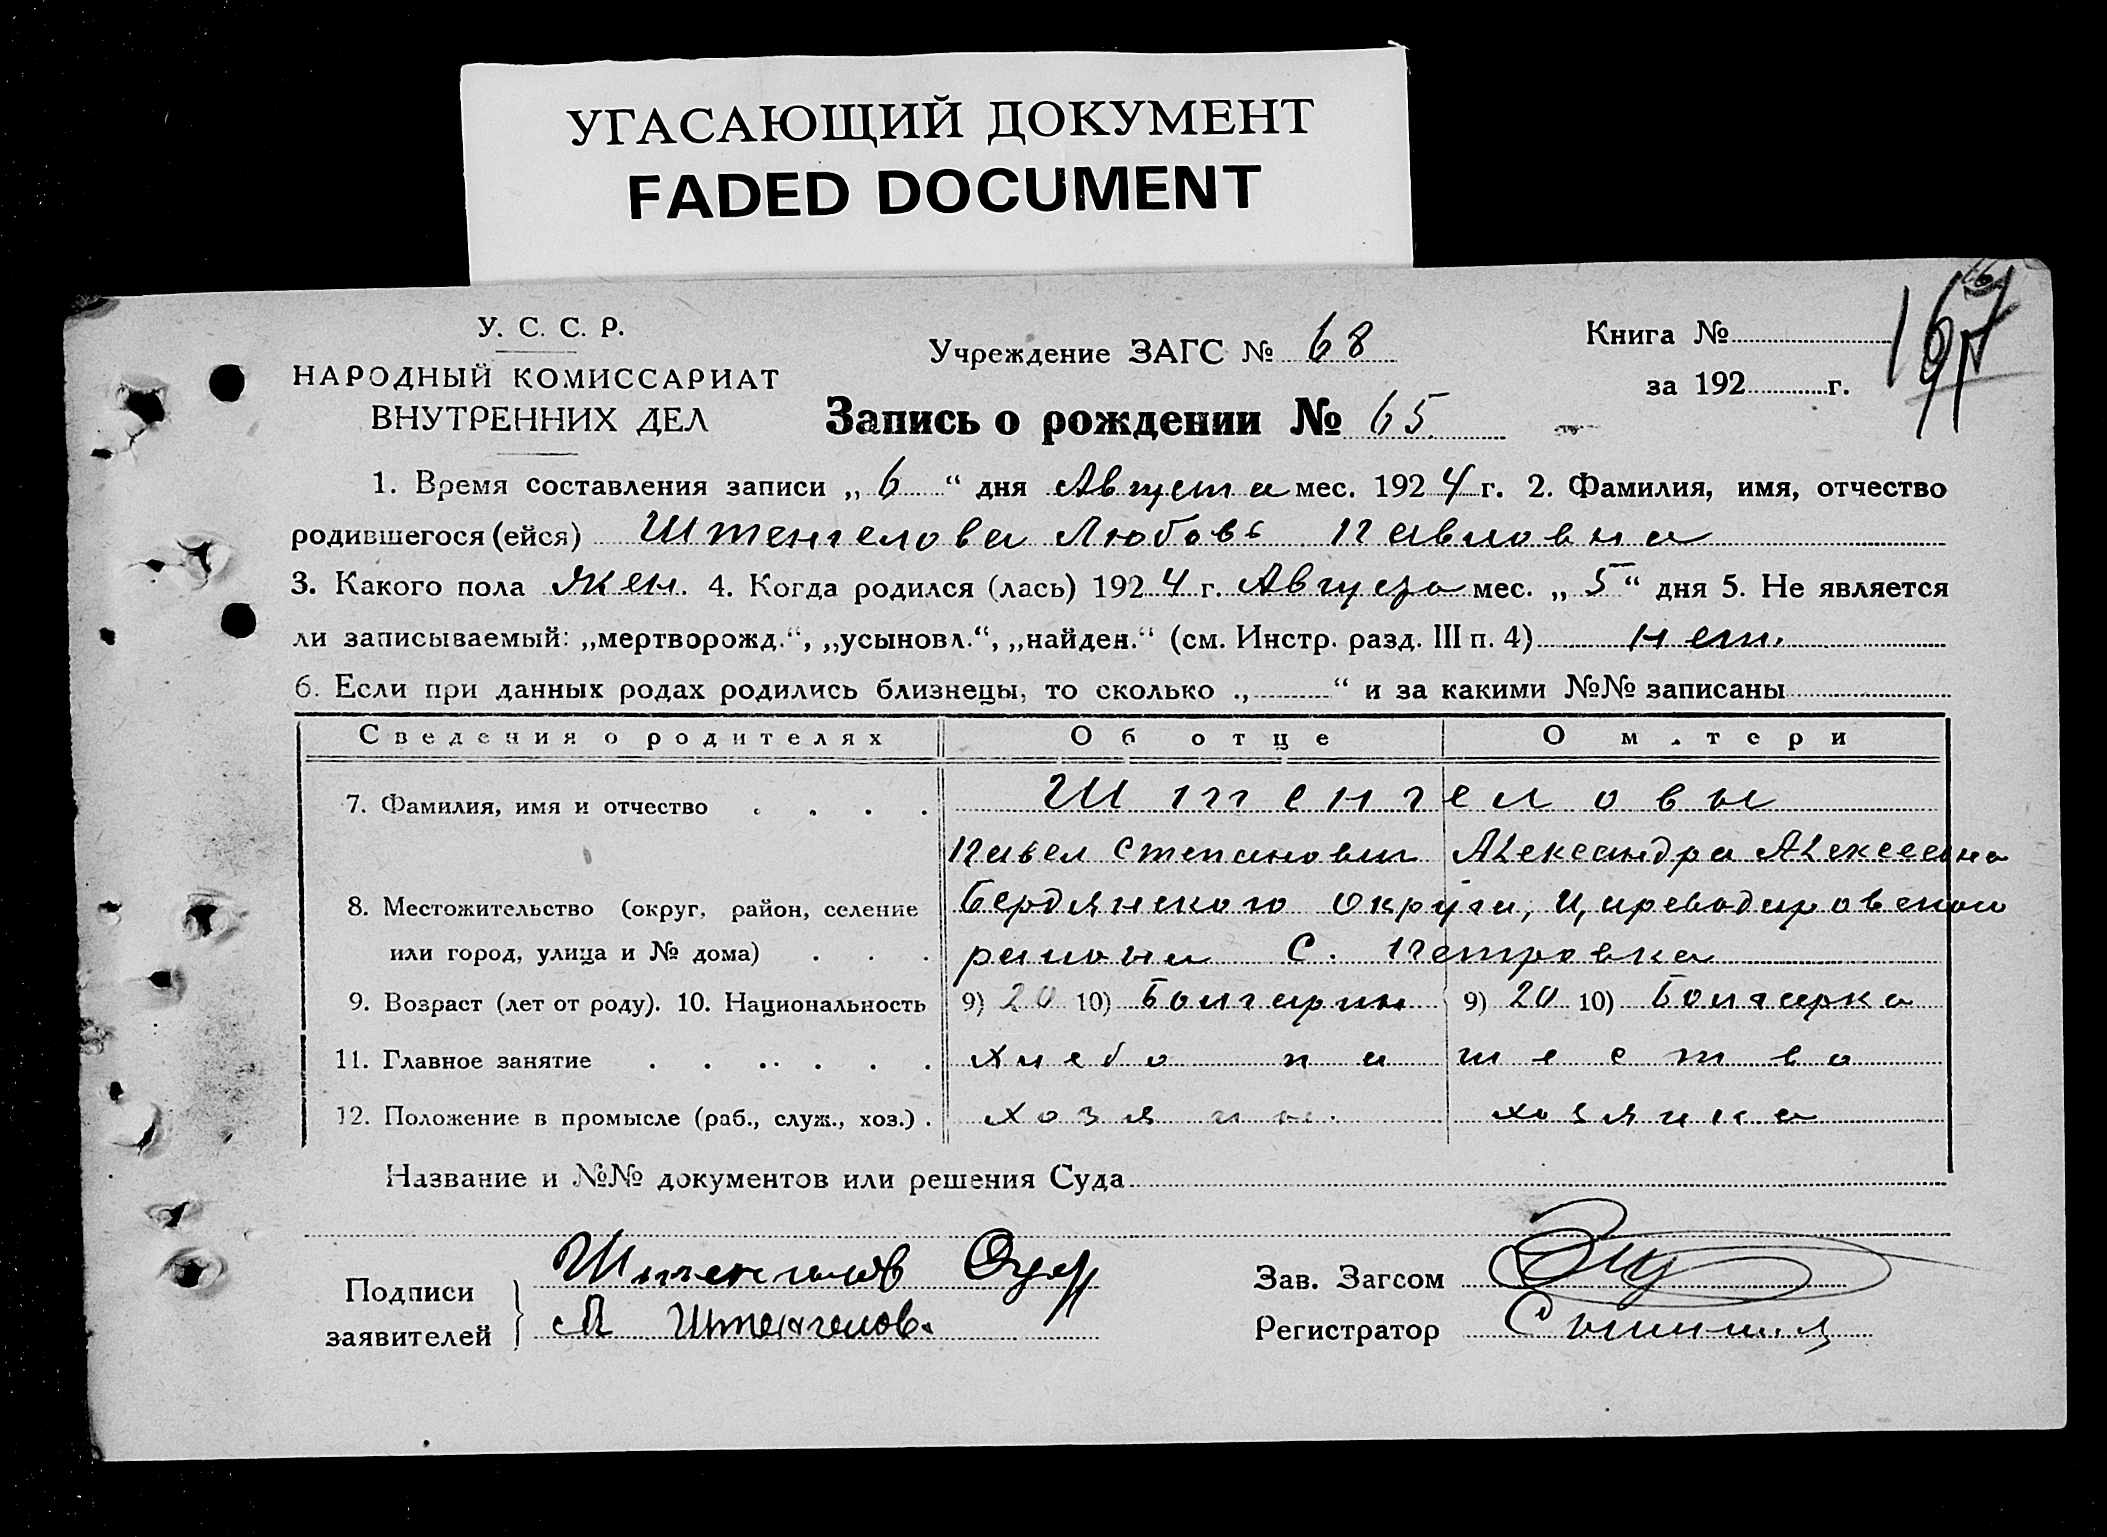 УГАСАЮЩИЙ ДОКУМЕНТ
FADED DOCUMENT
У. С. С. Р.
НАРОДНЫЙ КОМИССАРИАТ
ВНУТРЕННИХ ДЕЛ
Учреждение ЗАГС № 68
Книга №
за 192 г.
167
Запись о рождении № 65
1. Время составления записи „ 6 “ дня Августа мес. 1924 г. 2. Фамилия, имя, отчество
родившегося (ейся) Штенгелова Любовь Павловна
3. Какого пола Жен. 4. Когда родился (лась) 1924 г. Августа мес. „ 5 “ дня 5. Не является
ли записываемый: „мертворожд.“, „усыновл.“, „найден.“ (см. Инстр. разд. III п. 4) нет.
6. Если при данных родах родились близнецы, то сколько „ “ и за какими №№ записаны
Сведения о родителях Об отце О матери
7. Фамилия, имя и отчество . . . . Штенгеловы
Павел Степанович Александра Алексеевна
8. Местожительство (округ, район, селение Бердянского округа, Цареводаровского
или город, улица и № дома) . . . района С. Петровка
9. Возраст (лет от роду). 10. Национальность 9) 20 10) Болгарин 9) 20 10) Болгарка
11. Главное занятие . . . . . . Хлебопашество
12. Положение в промысле (раб., служ., хоз.) . хозяин. хозяйка
Название и №№ документов или решения Суда
Подписи
заявителей
Штенгелов
М Штенгелов.
Зав. Загсом
Регистратор